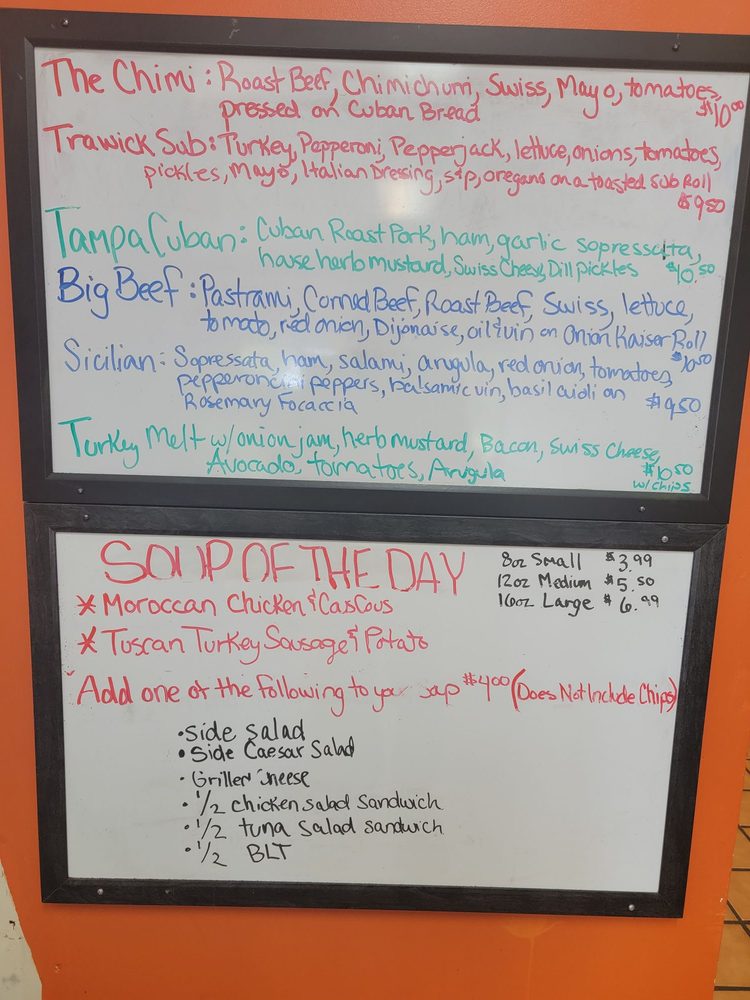 The Chimi: Roast Beef, Chimichurri, Swiss, Mayo, tomatoes,
pressed on Cuban Bread $10.00
Trawick Sub: Turkey, Pepperoni, Pepperjack, lettuce, onions, tomatoes,
pickles, Mayo, Italian Dressing, s&p, oregano on a toasted Sub Roll
$9.50
Tampa Cuban: Cuban Roast Pork, ham, garlic sopressata,
house herb mustard, Swiss Cheese, Dill pickles $10.50
Big Beef: Pastrami, Corned Beef, Roast Beef, Swiss, lettuce,
tomato, red onion, Dijonaise, oil & vin on Onion Kaiser Roll
$10.50
Sicilian: Sopressata, ham, salami, arugula, red onion, tomatoes,
pepperoncini peppers, balsamic vin, basil aioli on
Rosemary Focaccia $9.50
Turkey Melt w/onion jam, herb mustard, Bacon, Swiss Cheese,
Avocado, tomatoes, Arugula $10.50
w/chips
SOUP OF THE DAY
8oz Small $3.99
12oz Medium $5.50
16oz Large $6.99
* Moroccan Chicken & CousCous
* Tuscan Turkey Sausage & Potato
Add one of the following to your soup $4.00 (Does Not Include Chips)
• Side Salad
• Side Caesar Salad
• Grilled Cheese
• 1/2 chicken salad sandwich
• 1/2 tuna salad sandwich
• 1/2 BLT